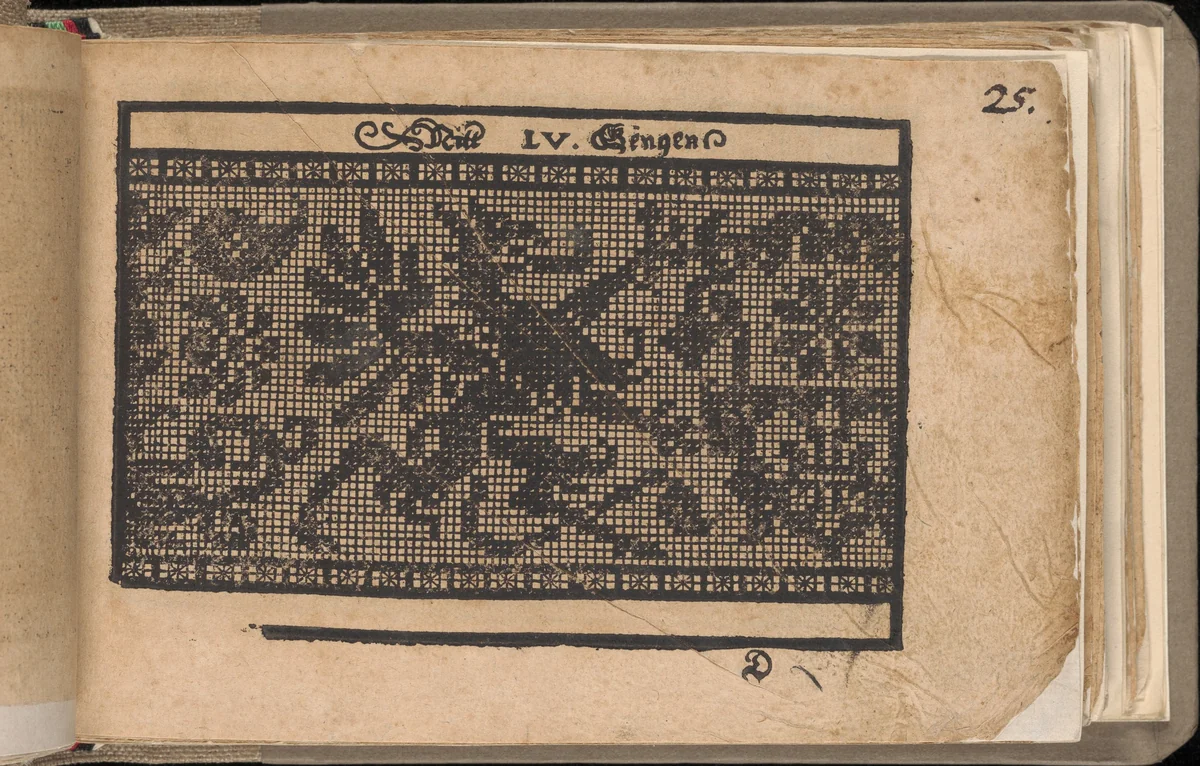 25.
Mitt LV. Gengen
D